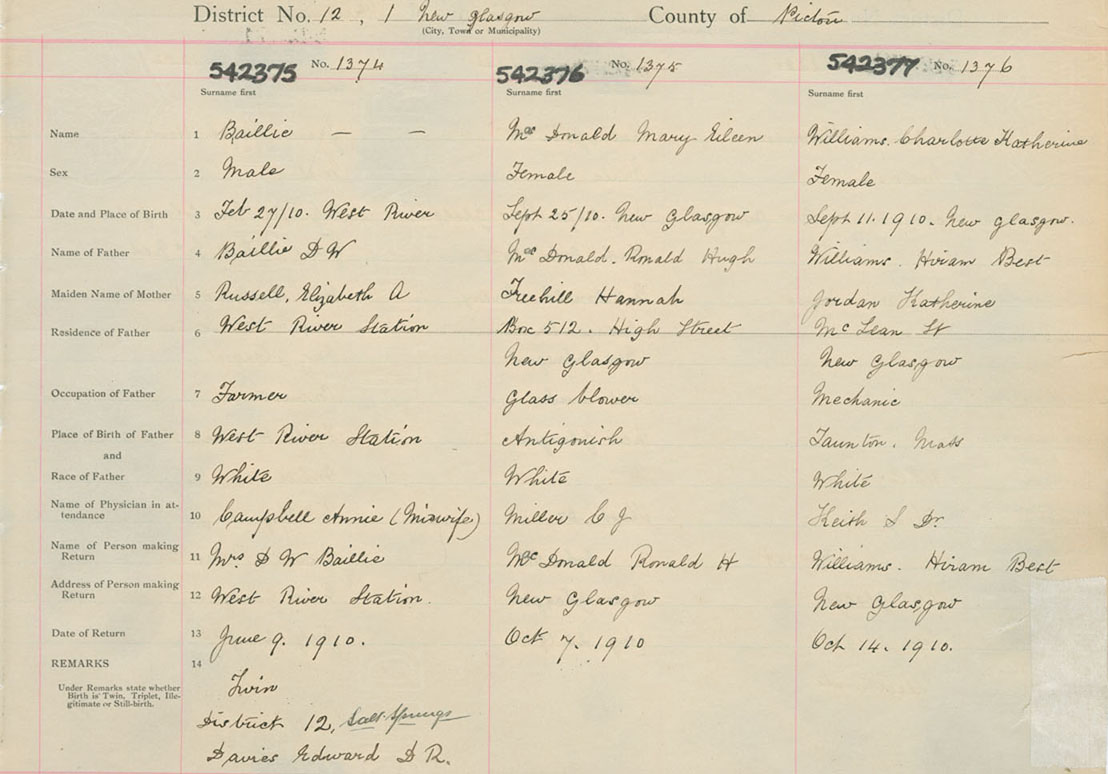 District No. 12, 1 New Glasgow County of Pictou
(City, Town or Municipality)
542375 No. 1374 542376 No. 1375 542377 No. 1376
Surname first Surname first Surname first
Name 1 Baillie — — McDonald Mary Eileen Williams. Charlotte Katherine
Sex 2 Male Female Female
Date and Place of Birth 3 Feb 27/10. West River Sept 25/10. New Glasgow Sept 11. 1910. New Glasgow.
Name of Father 4 Baillie D W McDonald. Ronald Hugh Williams. Hiram Best
Maiden Name of Mother 5 Russell, Elizabeth A Treehill Hannah Jordan Katherine
Residence of Father 6 West River Station Box 512. High Street McLean St
New Glasgow New Glasgow
Occupation of Father 7 Farmer Glass blower Mechanic
Place of Birth of Father 8 West River Station Antigonish Taunton. Mass
and
Race of Father 9 White White White
Name of Physician in at-
tendance 10 Campbell Annie (Midwife) Miller C J Keith S Dr.
Name of Person making
Return 11 Mrs D W Baillie McDonald Ronald H Williams. Hiram Best
Address of Person making
Return 12 West River Station. New Glasgow New Glasgow
Date of Return 13 June 9. 1910. Oct 7. 1910 Oct 14. 1910.
REMARKS 14
Under Remarks state whether
Birth is Twin, Triplet, Ille-
gitimate or Still-birth.
Twin
District 12, Salt Springs
Davies Edward D R.